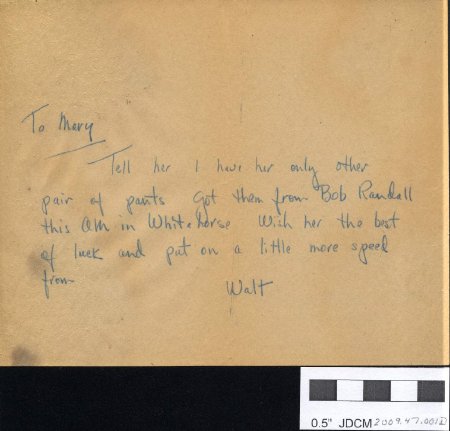 To Mary
Tell her I have her only other
pair of pants Got them from Bob Randall
this AM in Whitehorse Wish her the best
of luck and put on a little more speed
from
Walt
0.5" JDCM 2009.47.001D